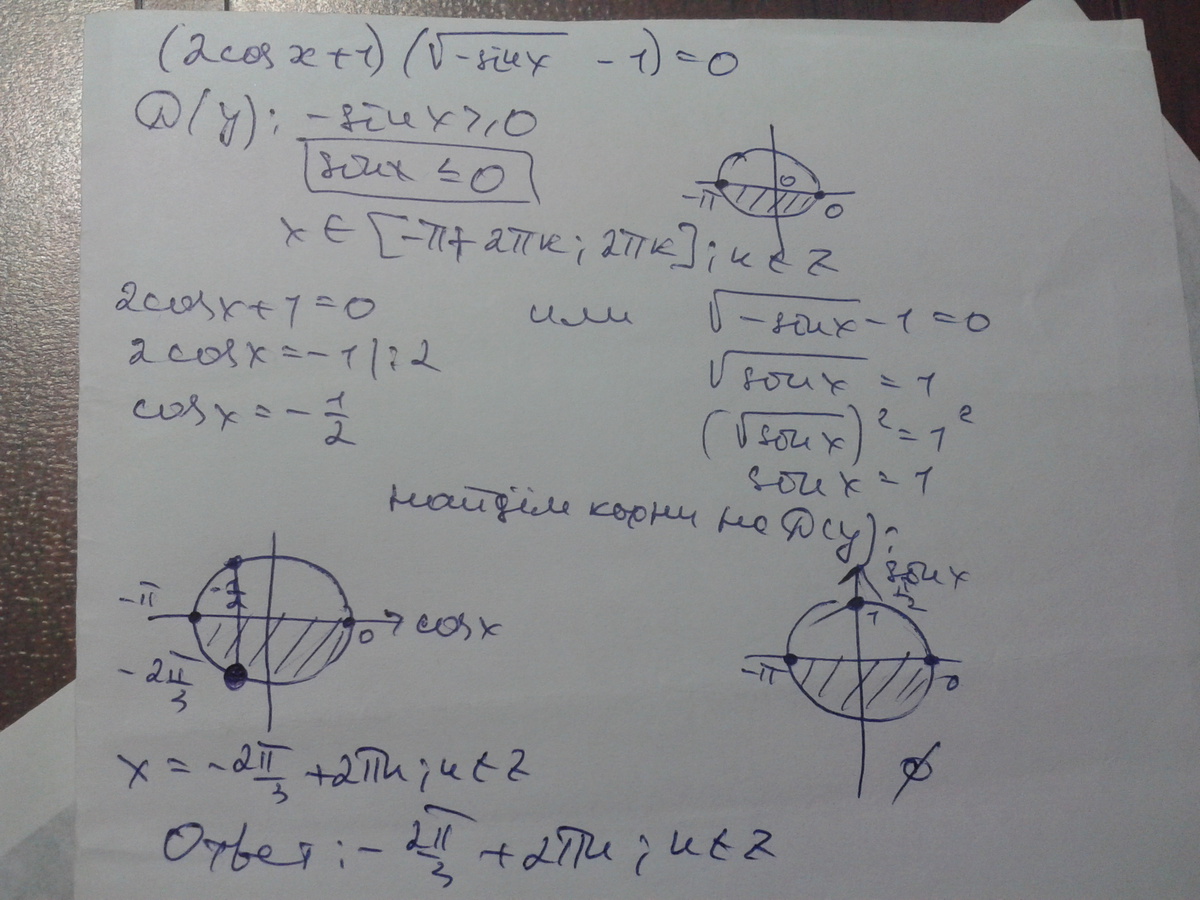 (2cos x + 1)(√(-sin x) - 1) = 0
D(y): -sin x ≥ 0
sin x ≤ 0
-π 0 0
x ∈ [-π + 2πк; 2πк]; к ∈ Z
2cos x + 1 = 0 или √(-sin x) - 1 = 0
2cos x = -1 | : 2 √(sin x) = 1
cos x = -1/2 (√(sin x))² = 1²
sin x = 1
найдём корни на D(y):
-π -1/2 0 cos x
-2π/3
sin x
π/2
1
-π 0
x = -2π/3 + 2πн; н ∈ Z ∅
Ответ: -2π/3 + 2πн; н ∈ Z